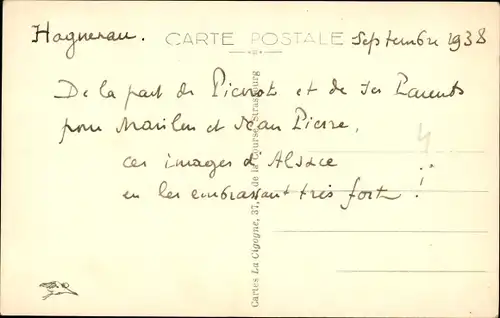 Haguenau. CARTE POSTALE Septembre 1938
De la part de Pierrot et de ses Parents
pour Marilou et Jean Pierre,
ces images d'Alsace
en les embrassant très fort !
Cartes La Cigogne, 37, r. de la Course, Strasbourg